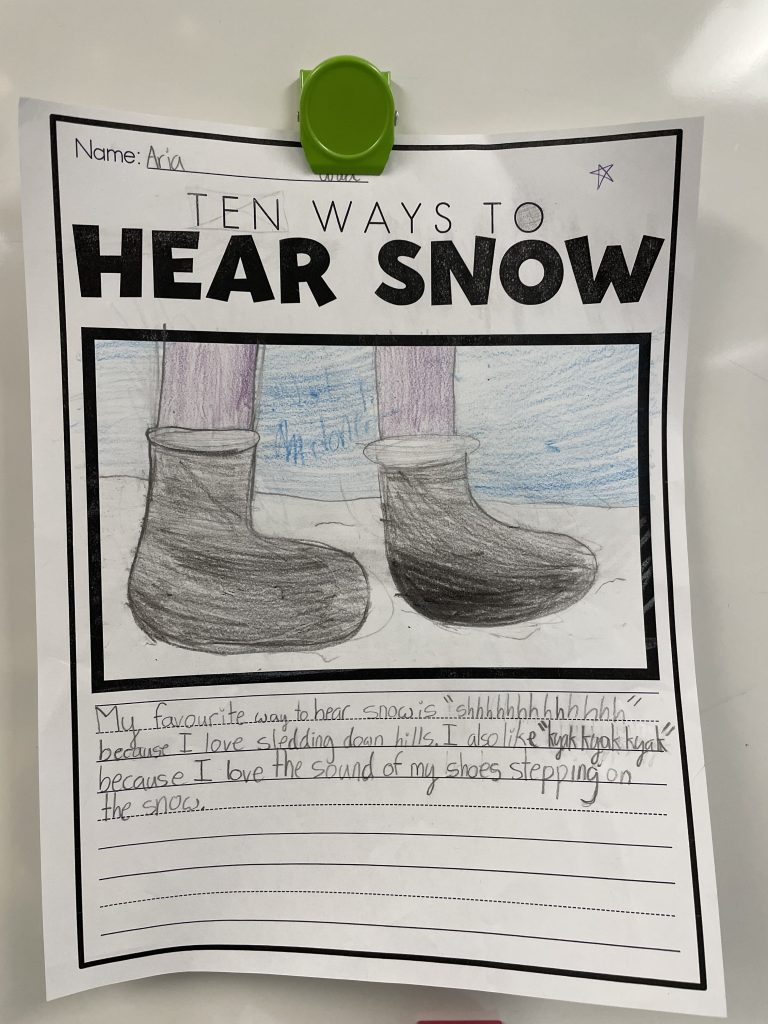 Name: Aria
TEN WAYS TO
HEAR SNOW
My favourite way to hear snow is "shhhhhhhhhhhhh"
because I love sledding down hills. I also like "kyak kyak kyak"
because I love the sound of my shoes stepping on
the snow.